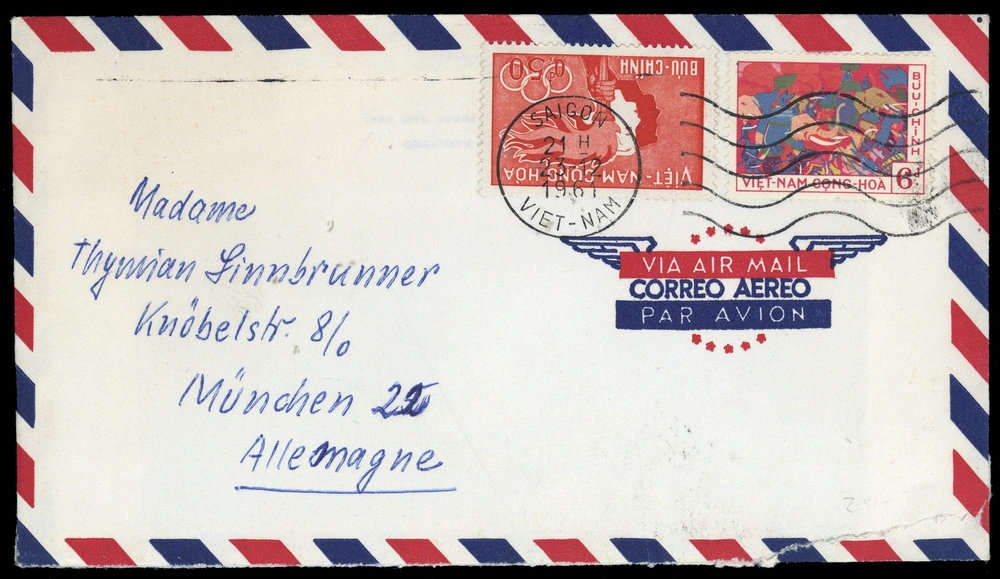 0đ50
BƯU-CHÍNH
VIỆT-NAM CỘNG-HÒA
SAIGON
21 H
23-12
1961
VIET-NAM
BƯU-CHÍNH
VIỆT-NAM CỘNG-HÒA 6đ
VIA AIR MAIL
CORREO AEREO
PAR AVION
Madame
Thymian Linnbrunner
Knöbelstr. 8/0
München 22
Allemagne